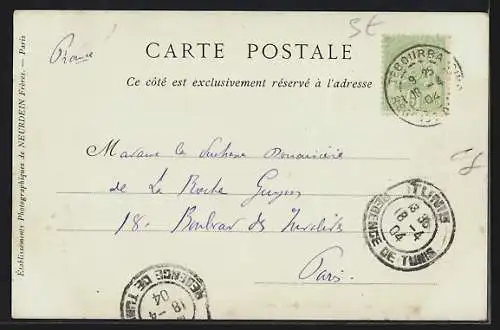 St
France
CARTE POSTALE
Ce côté est exclusivement réservé à l'adresse
TEBOURBA
9 35
18 -4
04
Madame la Duchesse Douairière
de La Roche Guyon
18. Boulevard des Invalides
Paris.
TUNIS
18 -4
04
REGENCE DE TUNIS
REGENCE DE TUNIS
18 -4
04
Etablissements Photographiques de NEURDEIN Frères. — Paris